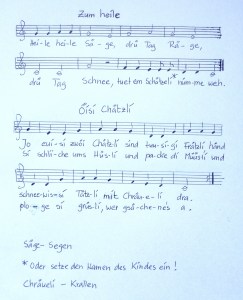 Zum heile
hei-le hei-le Sä-ge, drü Tag Rä-ge,
drü Tag Schnee, tuet em Schäbeli* nüm-me weh.
Öisi Chätzli
Jo eui-si zwöi Chätzli sind tau-si-gi Frätzli, händ
Si schli-che ums Hüs-li und pa-cke di Müüsli und
schnee-wis-si Tätz-li mit Chräu-e-li dra.
plo-ge si grüs-li, wer gsä-che-nes a.
Säge- Segen
* Oder setze den Namen des Kindes ein!
Chräueli - Krallen